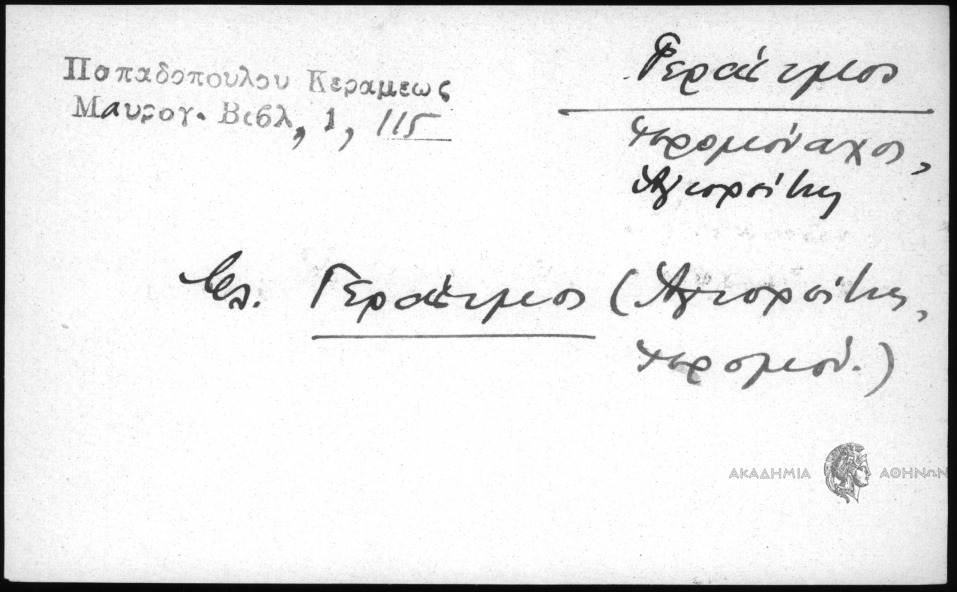 Παπαδοπουλου Κεραμεως
Μαυρογ. Βιβλ, 1, 115
Γεράσιμος
ἱερομόναχος,
Ἁγιορείτης
βλ. Γεράσιμος (Ἁγιορείτης,
ἱερομόν.)
ΑΚΑΔΗΜΙΑ ΑΘΗΝΩΝ